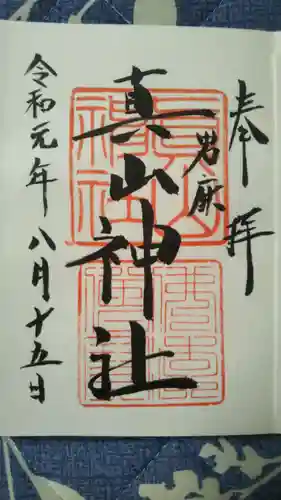 奉拝
男鹿
真山神社
令和元年八月十五日